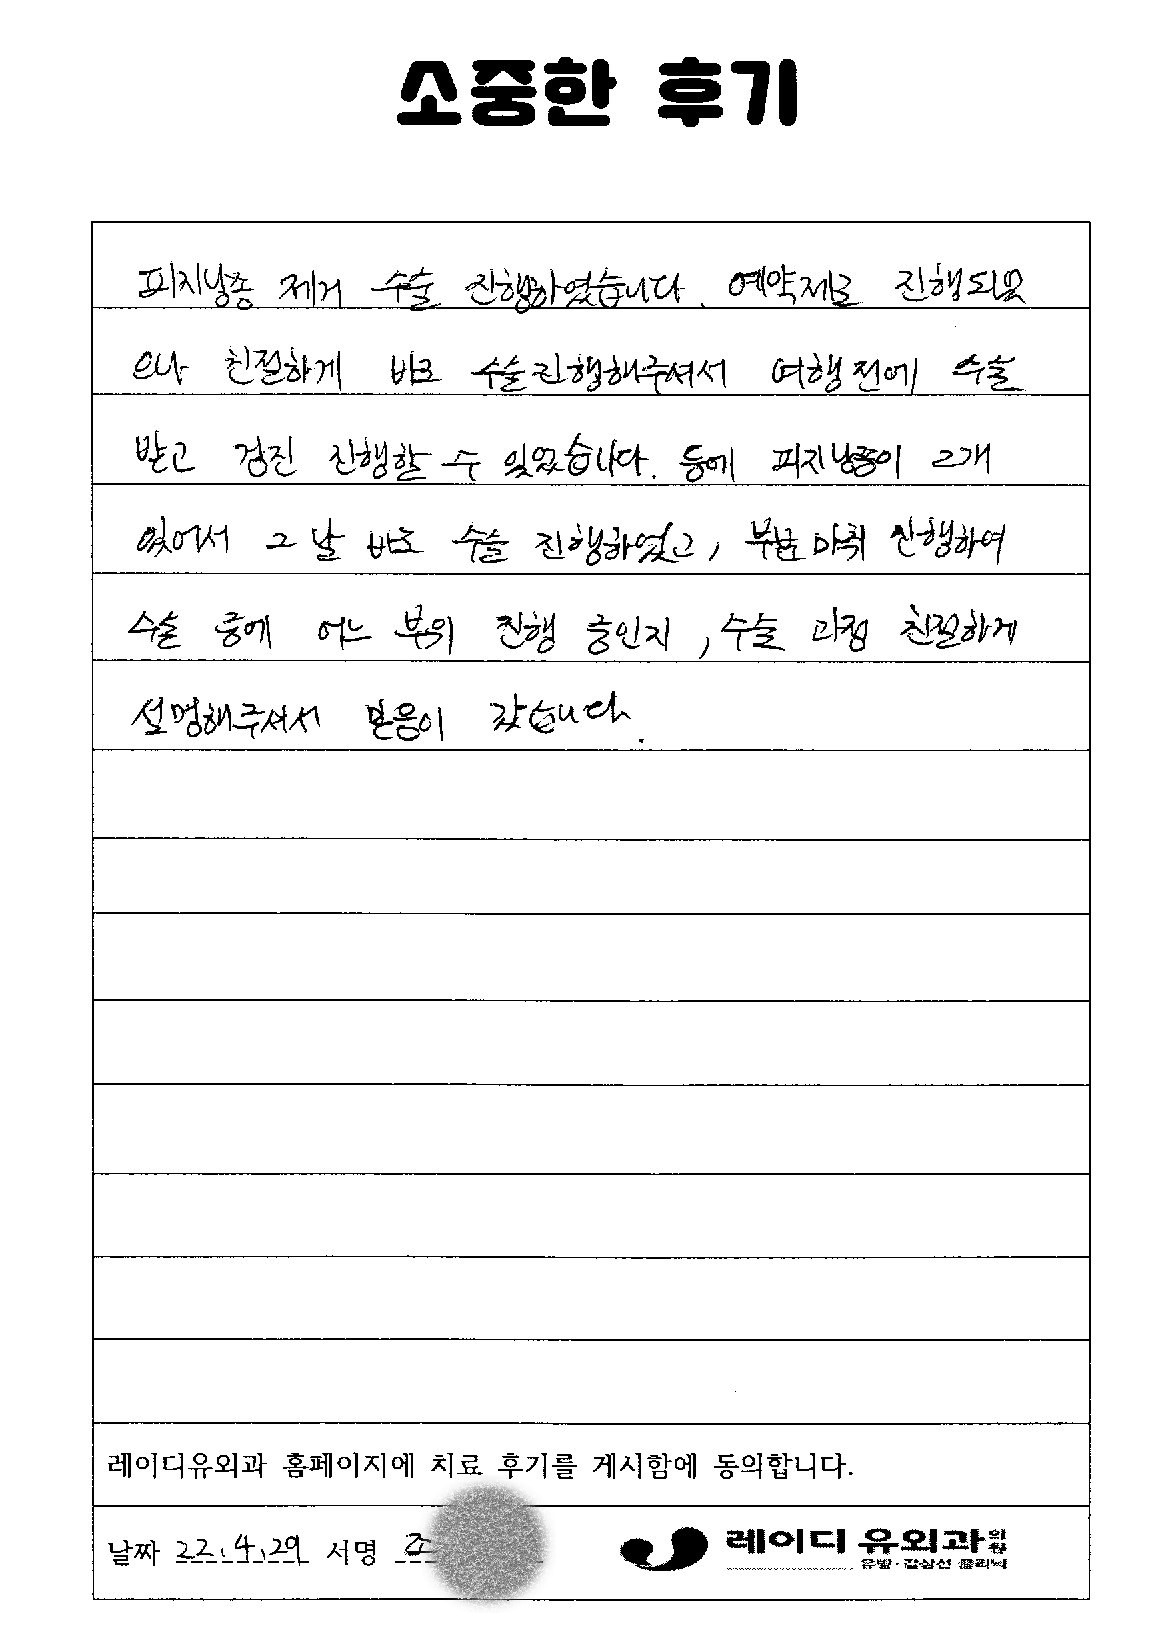 소중한 후기
피지낭종 제거 수술 진행하였습니다. 예약제로 진행되었
으나 친절하게 바로 수술진행해주셔서 여행전에 수술
받고 검진 진행할 수 있었습니다. 등에 피지낭종이 2개
있어서 그날 바로 수술 진행하였고, 부분마취 진행하여
수술 중에 어느 부위 진행 중인지, 수술 과정 친절하게
설명해주셔서 믿음이 갔습니다.
레이디유외과 홈페이지에 치료 후기를 게시함에 동의합니다.
날짜 22.4.29 서명 조
레이디유외과의원
유방·갑상선 클리닉